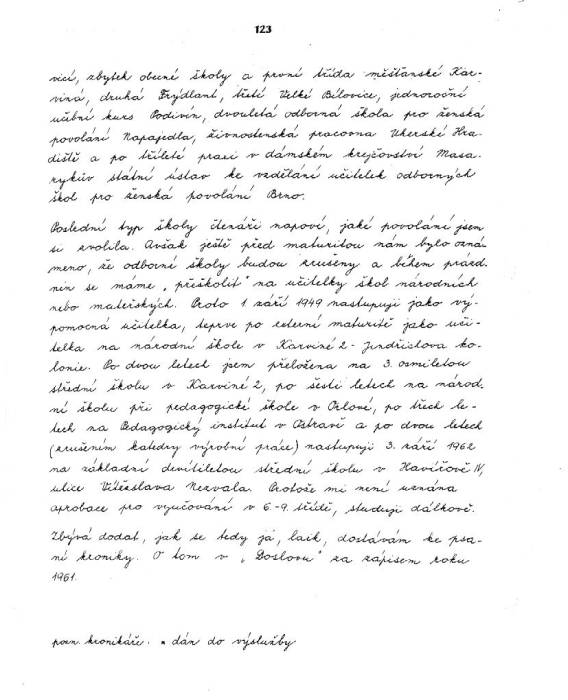 123
vicí, zbytek obecné školy a první třída měšťanské Kar-
viná, druhá Frýdlant, třetí Velké Bílovice, jednoroční
učební kurs Podivín, dvouletá odborná škola pro ženská
povolání Napajedla, živnostenská pracovna Uherské Hra-
diště a po tříleté praxi v dámském krejčovství Masa-
rykův státní ústav ke vzdělání učitelek odborných
škol pro ženská povolání Brno.
Poslední typ školy čtenáři napoví, jaké povolání jsem
si zvolila. Avšak ještě před maturitou nám bylo ozná-
meno, že odborné školy budou zrušeny a během prázd-
nin se máme „přeškolit" na učitelky škol národních
nebo mateřských. Proto 1 září 1949 nastupuji jako vý-
pomocná učitelka, teprve po externí maturitě jako uči-
telka na národní škole v Karviné 2 - Jindřichova ko-
lonie. Po dvou letech jsem přeložena na 3. osmiletou
střední školu v Karviné 2, po šesti letech na národ-
ní školu při pedagogické škole v Orlové, po třech le-
tech na Pedagogický institut v Ostravě a po dvou letech
(zrušením katedry výrobní práce) nastupuji 3. září 1962
na základní devítiletou střední školu v Havířově IV,
ulice Vítězslava Nezvala. Protože mi není uznána
aprobace pro vyučování v 6.-9. třídě, studuji dálkově.
Zbývá dodat, jak se tedy já, laik, dostávám ke psa-
ní kroniky. O tom v „Doslovu" za zápisem roku
1961.
pozn. kronikáře. * dán do výslužby